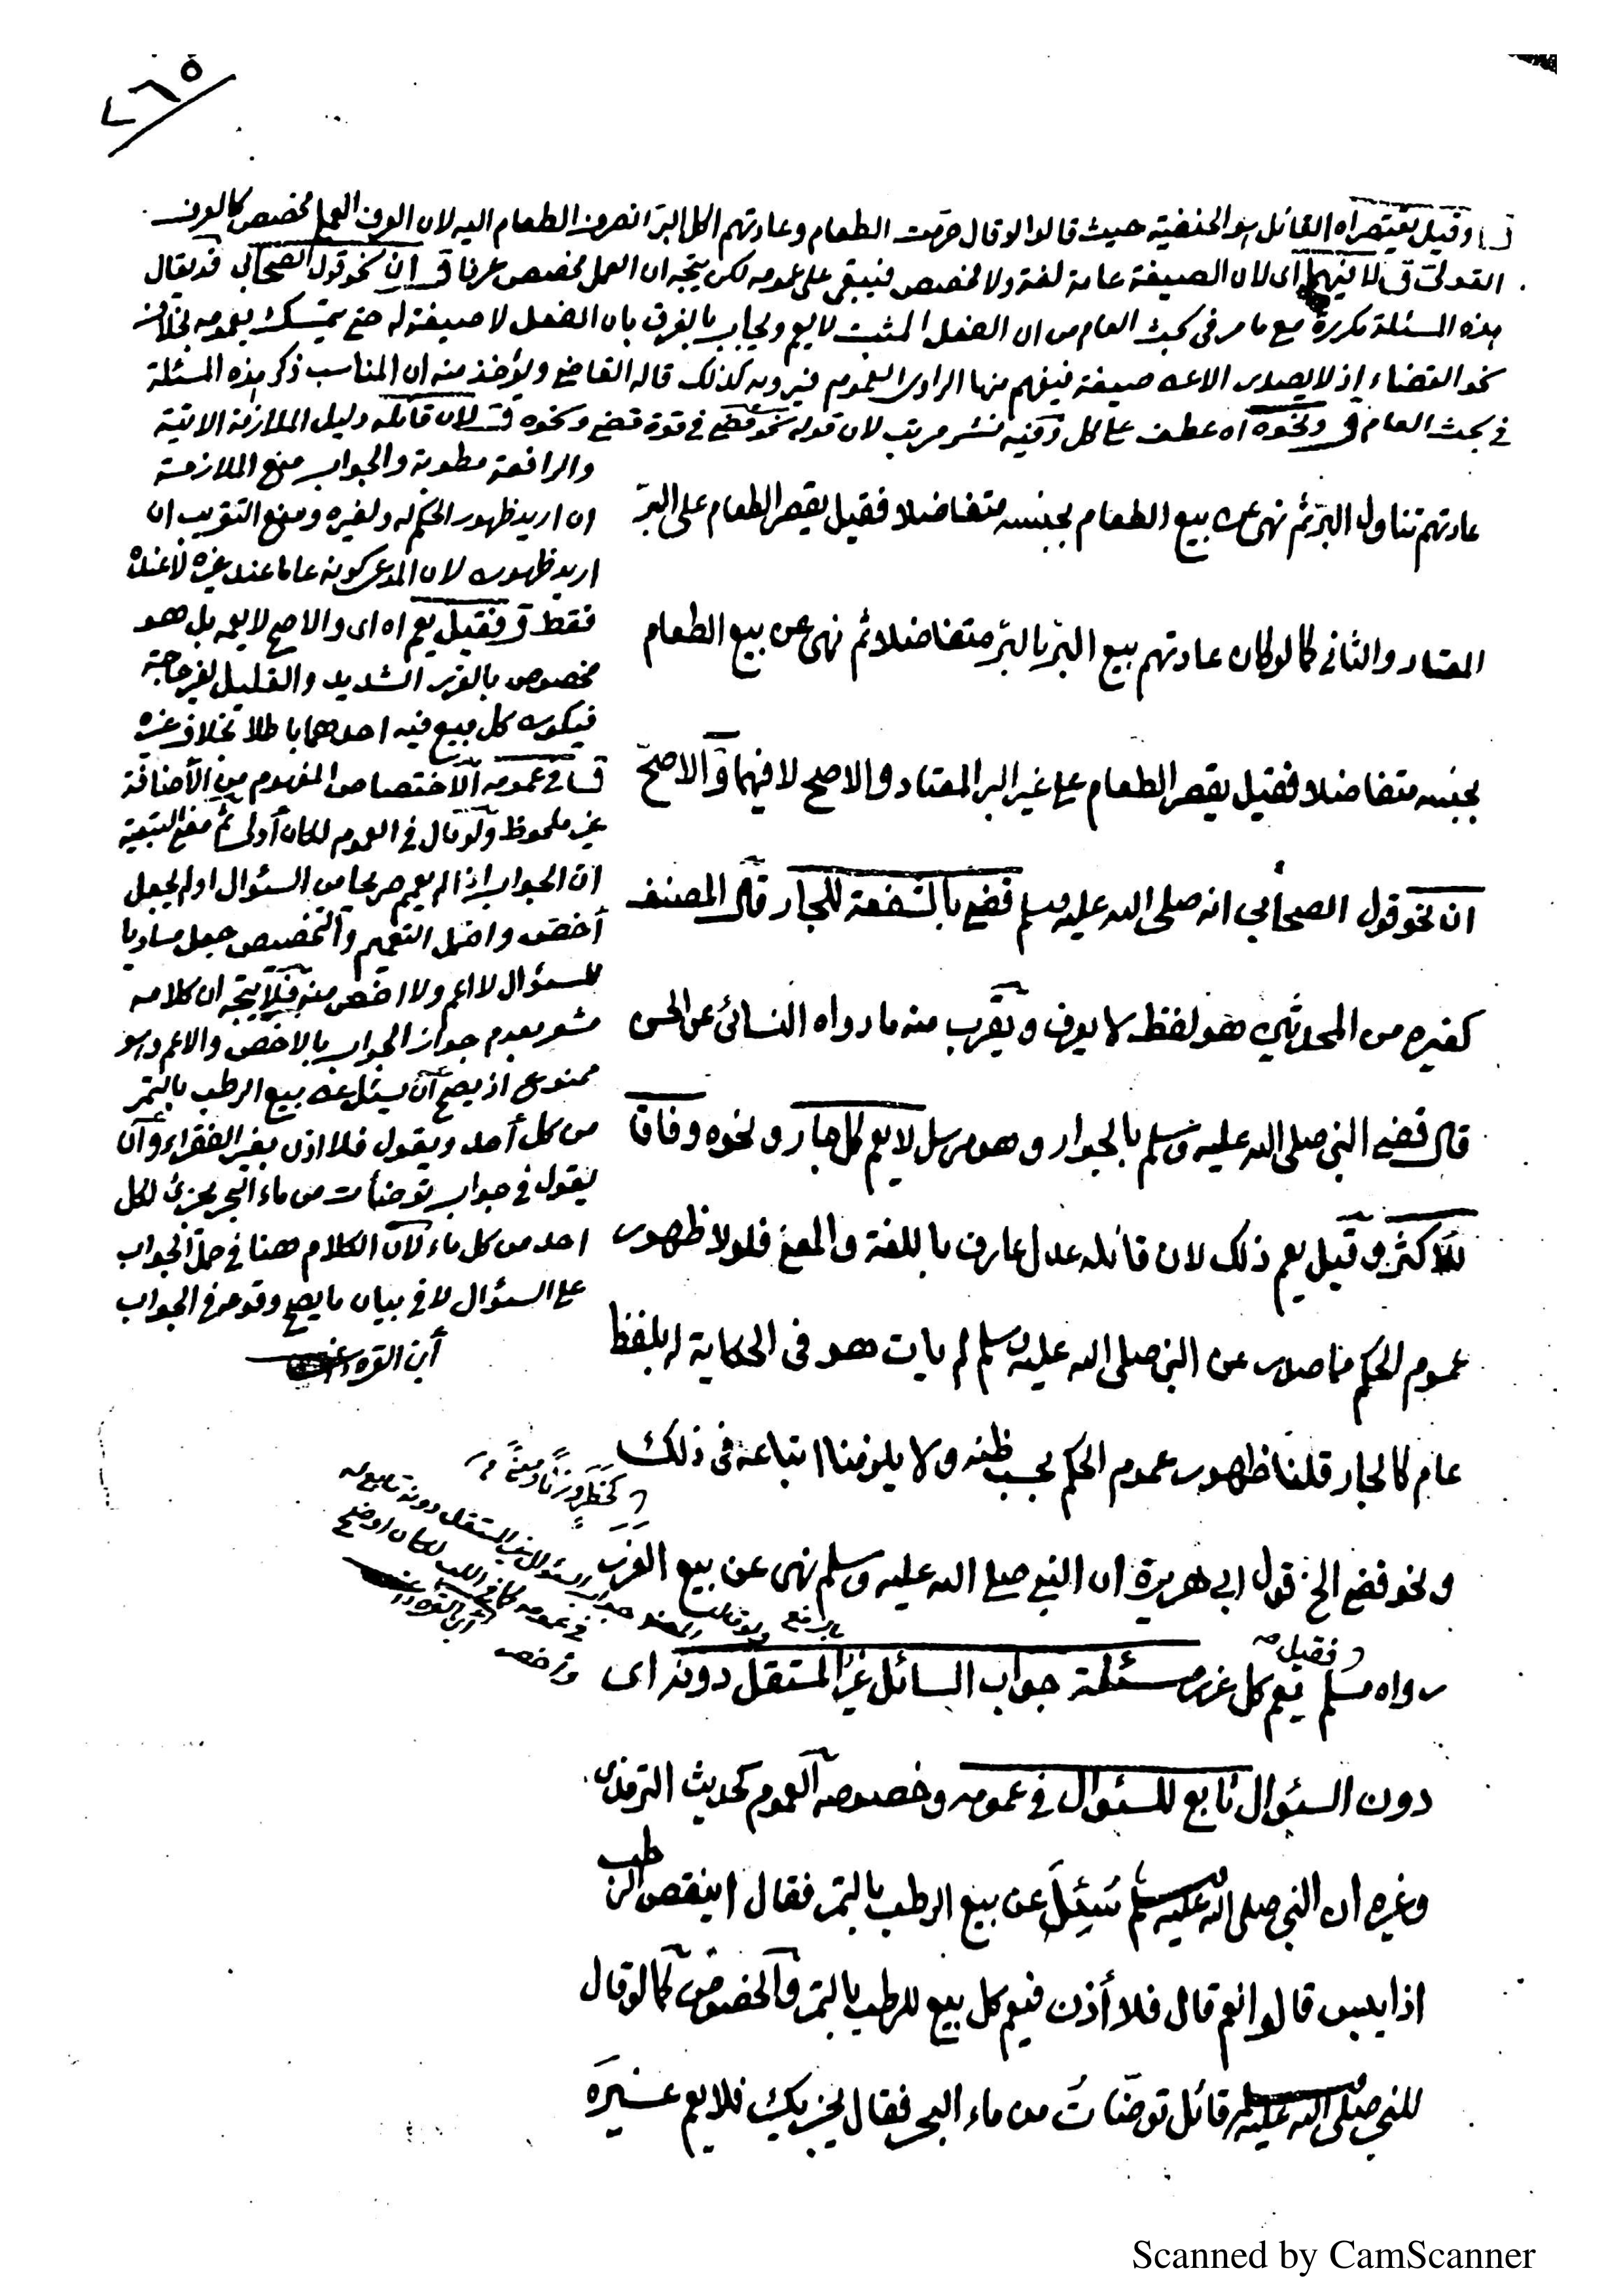 ٢٦٥
قـ وقيل يقتصر اه القائل هو الحنفية حيث قالوا لو قال حرمت الطعام وعادتهم اكل البر انصرف الطعام اليه لان العرف العملي مخصص كالعرف
القولى قـ لا فيهما اى لان الصيغة عامة لغة ولا مخصص فيبقى على عمومه لكن يتجه ان العمل مخصص عرفا قـ ان نحو قول الصحابى قد يقال
هذه المسئلة مكررة مع ما مر فى بحث العام من ان الفعل المثبت لا يعم ويجاب بالفرق بان الفعل لا صيغة له حتى يتمسك بعمومه بخلاف
نحو القضاء اذ لا يصدر الا عن صيغة فيفهم منها الراوى العموم فيرويه كذلك قاله القاضى ويؤخذ منه ان المناسب ذكر هذه المسئلة
فى بحث العام قـ ونحوه اه عطف على كل وفيه نشر مرتب لان قوله نحو قضى فى قوة قضى ونحوه قـ لان قائله دليل الملازمة الاتية
والرافعة مطوية والجواب منع الملازمة
ان اريد ظهور الحكم له ولغيره ومنع التقريب ان
اريد ظهوره لان المدعى كونه عاما عند غيره لا عنده
فقط قـ فقيل يعم اه اى والاصح لا يعمه بل هو
مخصوص بالغرر الشديد والقليل لغير حاجة
فيكون كل بيع فيه احدهما باطلا بخلاف غيره
قـ فى عمومه الاختصاص المفهوم من الاضافة
غير ملحوظ ولو قال فى العموم لكان أولى ثم معنى التبعية
ان الجواب اذا لم يعم صريحا من السؤال او لم يجعل
أخص واحتمل التعميم والتخصيص جعل مساويا
للسئوال لا اعم ولا اخص منه فلا يتجه ان كلامه
مشعر بعدم جواز الجواب بالاخص والاعم وهو
ممنوع اذ يصح أن يسئل عن بيع الرطب بالتمر
من كل أحد ويقول فلا اذن بغير الفقراء وأن
يقول فى جواب توضأت من ماء البحر يجزئ لكل
احد من كل ماء لان الكلام هنا فى حمل الجواب
على السئوال لا فى بيان ما يصح وقوعه فى الجواب
أبن القره داغى
عادتهم تناول البرّ ثم نهى عن بيع الطعام بجنسه متفاضلا فقيل يقصر الطعام على البرّ
المعتاد والثانى كما لو كان عادتهم بيع البرّ بالبرّ متفاضلا ثم نهى عن بيع الطعام
بجنسه متفاضلا فقيل يقصر الطعام على غير البر المعتاد والاصح لا فيهما و الاصحّ
ان نحو قول الصحابي انه صلى الله عليه وسلم قضى بالشفعة للجار قال المصنف
كغيره من المحدثين هو لفظ لا يعرف ويقرب منه ما رواه النسائى عن الحسن
قال قضى النبى صلى الله عليه وسلم بالجوار وهو مرسل لا يعم كل جار ونحوه وفاقا
للاكثر وقيل يعم ذلك لان قائله عدل عارف باللغة والمعنى فلولا ظهور
عموم الحكم مما صدر عن النبى صلى الله عليه وسلم لم يات هو فى الحكاية له بلفظ
عام كالجار قلنا ظهور عموم الحكم بحسب ظنه ولا يلزمنا اتباعه فى ذلك
ونحو قضى الخ قول ابى هريرة ان النبى صلى الله عليه وسلم نهى عن بيع الغرر
كخطر وزنا ومعنى
فقيل
رواه مسلم يعم كل غرر مسئلة جواب السائل غير المستقل دونه اى
دون السئوال تابع للسئوال فى عمومه وخصوصه العموم كحديث الترمذى
وغيره ان النبى صلى الله عليه وسلم سُئِلَ عن بيع الرطب بالتمر فقال اينقص الرطب
اذا يبس قالوا نعم قال فلا أذن فيعم كل بيع للرطب بالتمر والخصوص كما لو قال
للنبى صلى الله عليه وسلم قائل توضّات من ماء البحر فقال يجزيك فلا يعم غيره
Scanned by CamScanner